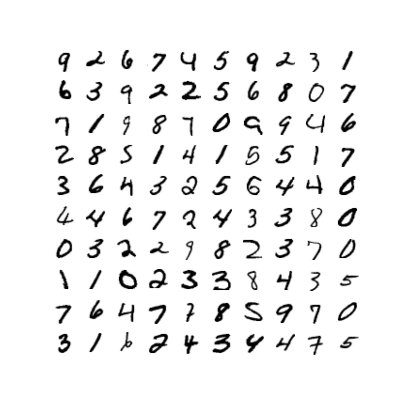 9 2 6 7 4 5 9 2 3 1
6 3 9 2 2 5 6 8 0 7
7 1 9 8 7 0 9 9 4 6
2 8 5 1 4 1 5 5 1 7
3 6 4 3 2 5 6 4 4 0
4 4 6 7 2 4 3 3 8 0
0 3 2 2 9 8 2 3 7 0
1 1 0 2 3 3 8 4 3 5
7 6 4 7 7 8 5 9 7 0
3 1 6 2 4 3 4 4 7 5